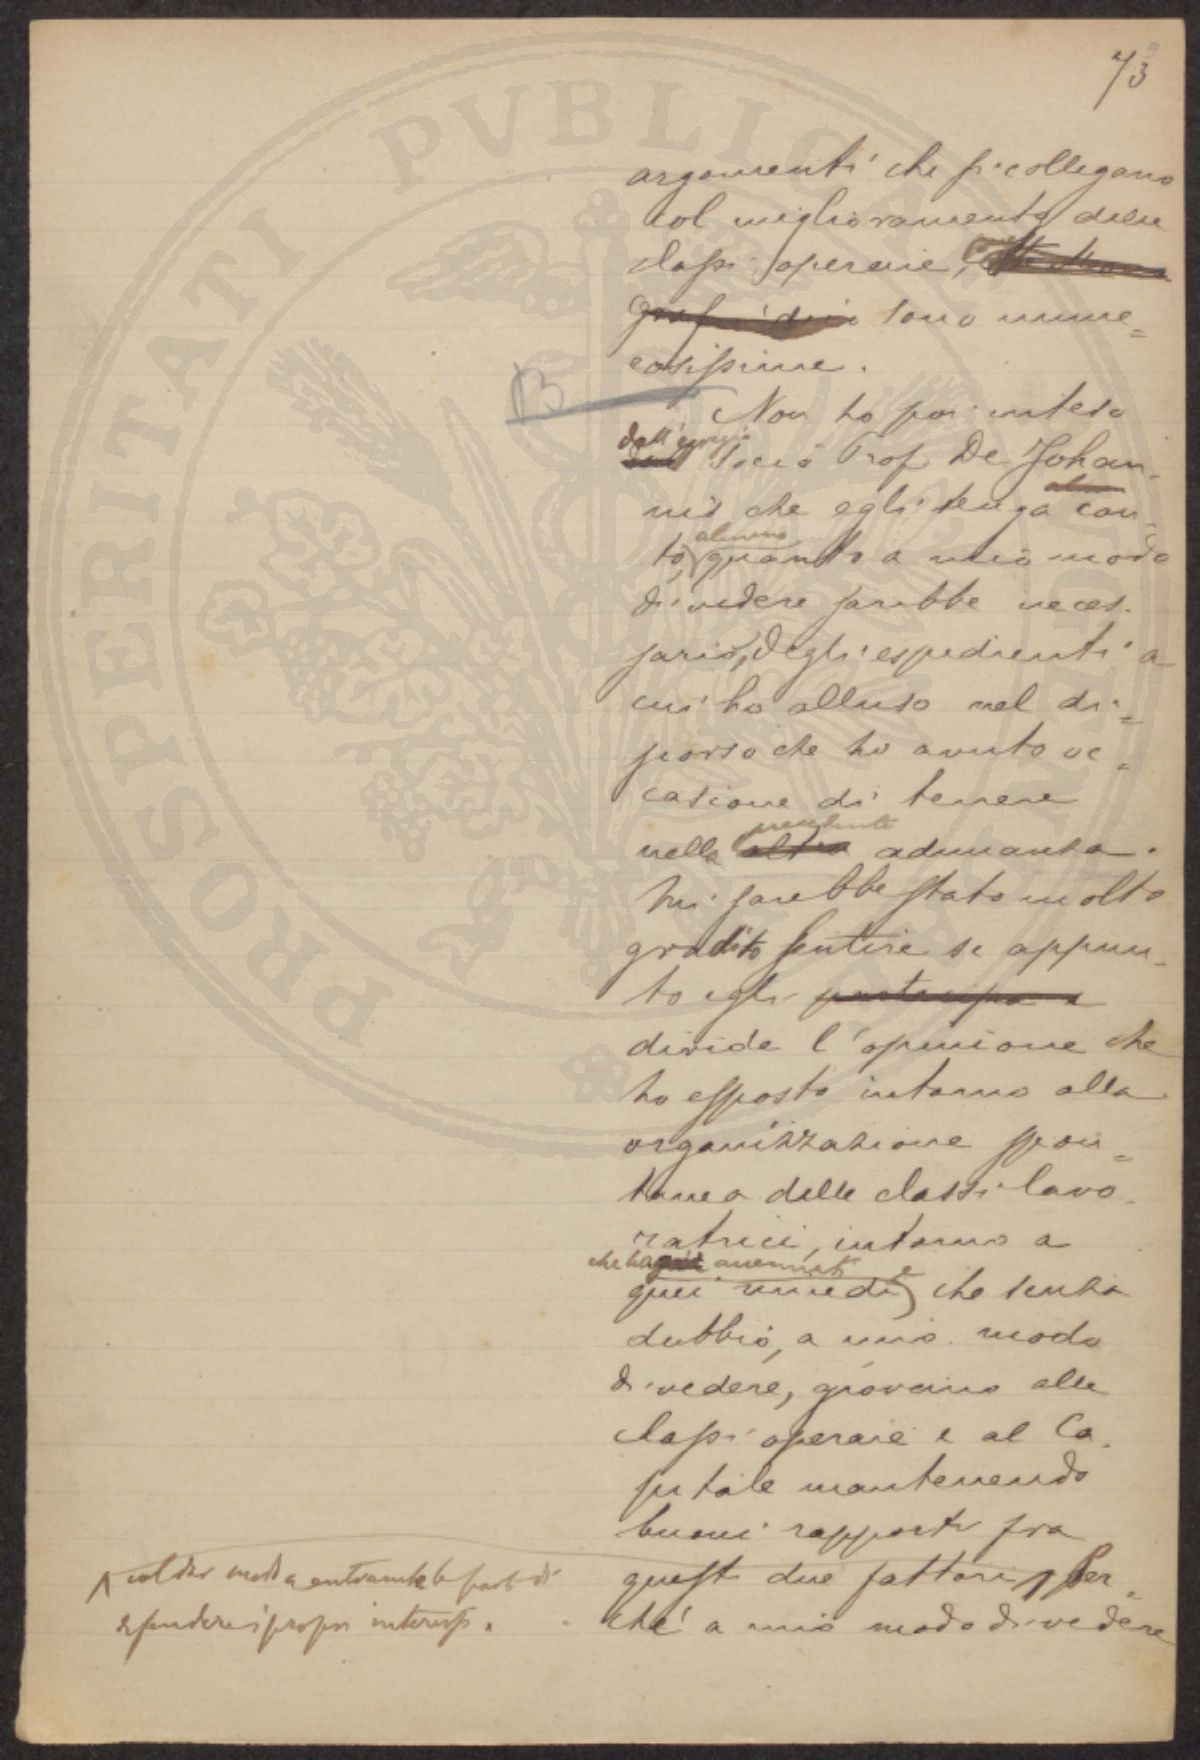 73
argomenti che si collegano
col miglioramento delle
classi operaie,
sono nume=
rosissime.
B
Non ho poi inteso
dall'egregio
Socio Prof. De Johan-
nis che egli tenga con-
almeno
to, quanto a mio modo
di vedere sarebbe neces-
sario, degli espedienti a
cui ho alluso nel di=
scorso che ho avuto oc=
casione di tenere
precedente
nella altra adunanza.
Mi sarebbe stato molto
gradito sentire se appun-
to egli partecipa e
divide l'opinione che
ho esposto intorno alla
organizzazione spon=
tanea delle classi lavo-
ratrici, intorno a
che ha già accennati
quei rimedi, che senza
dubbio, a mio modo
di vedere, giovano alle
classi operaie e al Ca-
pitale mantenendo
buoni rapporti fra
questi due fattori, Per=
ché a mio modo di vedere
col dar modo a entrambe le parti di
difendere i propri interessi.
PROSPERITATI PVBLICAE